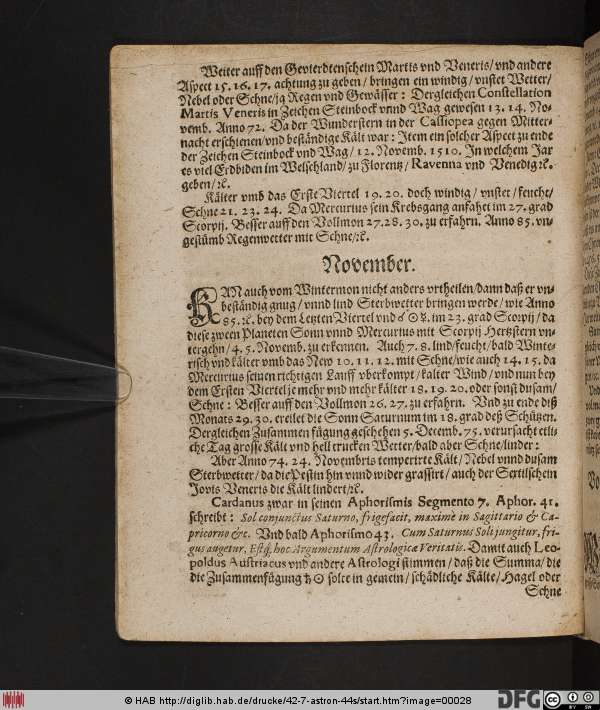 Weiter auff den Gevierdtenschein Martis vnd Veneris/ vnd andere
Aspect 15. 16. 17. achtung zu geben/ bringen ein windig/ vnstet Wetter/
Nebel oder Schne/ja Regen vnd Gewässer: Dergleichen Constellation
Martis Veneris in Zeichen Steinbock vnnd Wag gewesen 13. 14. No-
vemb. Anno 72. Da der Wunderstern in der Calliopea gegen Mitter-
nacht erschienen/vnd beständige Kält war: Item ein solcher Aspect zu ende
der Zeichen Steinbock vnd Wag/ 12. Novemb. 1510. In welchem Jar
es viel Erdbiden im Welschland/ zu Florentz/ Ravenna vnd Venedig ꝛc.
geben/ ꝛc.
Kälter vmb das Erste Viertel 19. 20. doch windig/ vnstet/ feucht/
Schne 21. 23. 24. Da Mercurius sein Krebsgang anfahet im 27. grad
Scorpij. Besser auff den Vollmon 27. 28. 30. zu erfahrn. Anno 85. vn-
gestümb Regenwetter mit Schne/ ꝛc.
November.
KAN auch vom Wintermon nicht anders vrtheilen/ dann daß er vn-
beständig gnug/ vnnd lind Sterbwetter bringen werde/ wie Anno
85. ꝛc. bey dem Letzten Viertel vnd ☌ ☉ ☿. im 23. grad Scorpij/ da
diese zween Planeten Sonn vnnd Mercurius mit Scorpij Hertzstern vn-
tergehn/ 4. 5. Novemb. zu erkennen. Auch 7. 8. lind/feucht/ bald Winte-
risch vnd kälter vmb das New 10. 11. 12. mit Schne/wie auch 14. 15. da
Mercurius seinen richtigen Lauff vberkompt/ kalter Wind/ vnd nun bey
dem Ersten Viertel je mehr vnd mehr kälter 18. 19. 20. oder sonst dusam/
Schne: Besser auff den Vollmon 26. 27. zu erfahrn. Vnd zu ende diß
Monats 29. 30. ereilet die Sonn Saturnum im 18. grad deß Schützen.
Dergleichen Zusammenfügung geschehen 5. Decemb. 75. verursacht etli-
che Tag grosse Kält vnd hell trucken Wetter/ bald aber Schne/linder:
Aber Anno 74. 24. Novembris temperirte Kält/ Nebel vnnd dusam
Sterbwetter/ da die Pestin hin vnnd wider grassirt/ auch der Sextilschein
Jovis Veneris die Kält lindert/ ꝛc.
Cardanus zwar in seinen Aphorismis Segmento 7. Aphor. 41.
schreibt: Sol conjunctus Saturno, frigefacit, maximè in Sagittario & Ca-
pricorno &c. Vnd bald Aphorismo 43. Cum Saturnus Soli jungitur, fri-
gus augetur, Estq́; hoc Argumentum Astrologicæ Veritatis. Damit auch Leo-
poldus Austriacus vnd andere Astrologi stimmen/ daß die Summa/ die
die Zusammenfügung ♄ ☉ solte in gemein/ schädliche Kälte/ Hagel oder
Schne
© HAB http://diglib.hab.de/drucke/42-7-astron-44s/start.htm?image=00028
DFG
cc
BY SA